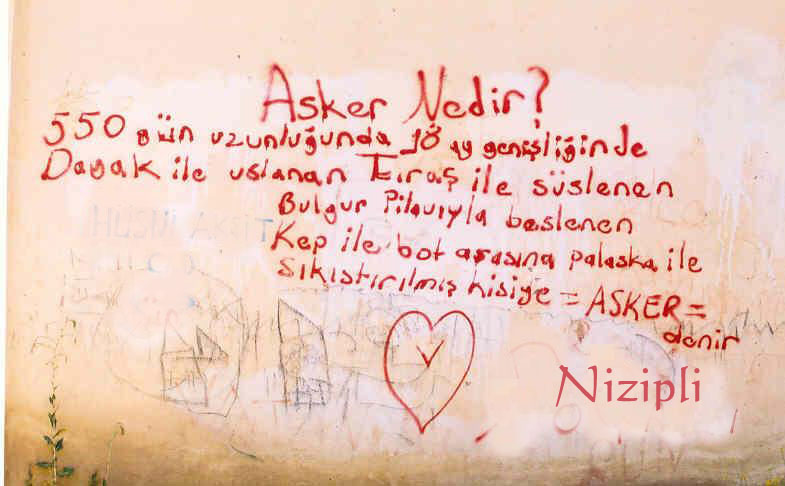 Asker Nedir?
550 gün uzunluğunda 18 ay genişliğinde
Dayak ile uslanan Tıraş ile süslenen
Bulgur Pilavıyla beslenen
Kep ile bot arasına palaska ile
Sıkıştırılmış kişiye = ASKER =
denir
Nizipli